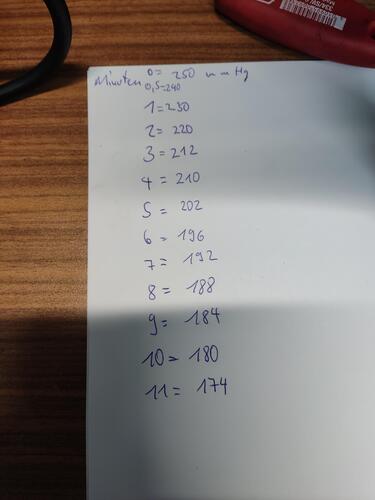 Minuten 0= 250 mmHg
0,5=240
1=230
2=220
3=212
4=210
5=202
6=196
7=192
8=188
9=184
10=180
11=174